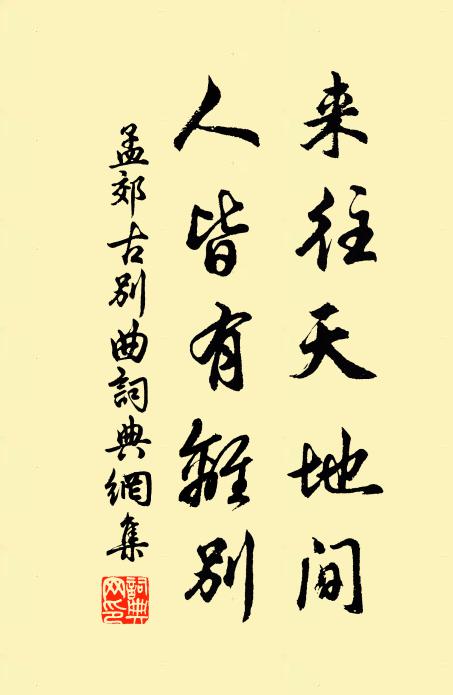 来往天地间
人皆有離别
孟郊古别曲詞典網集
詞典網印